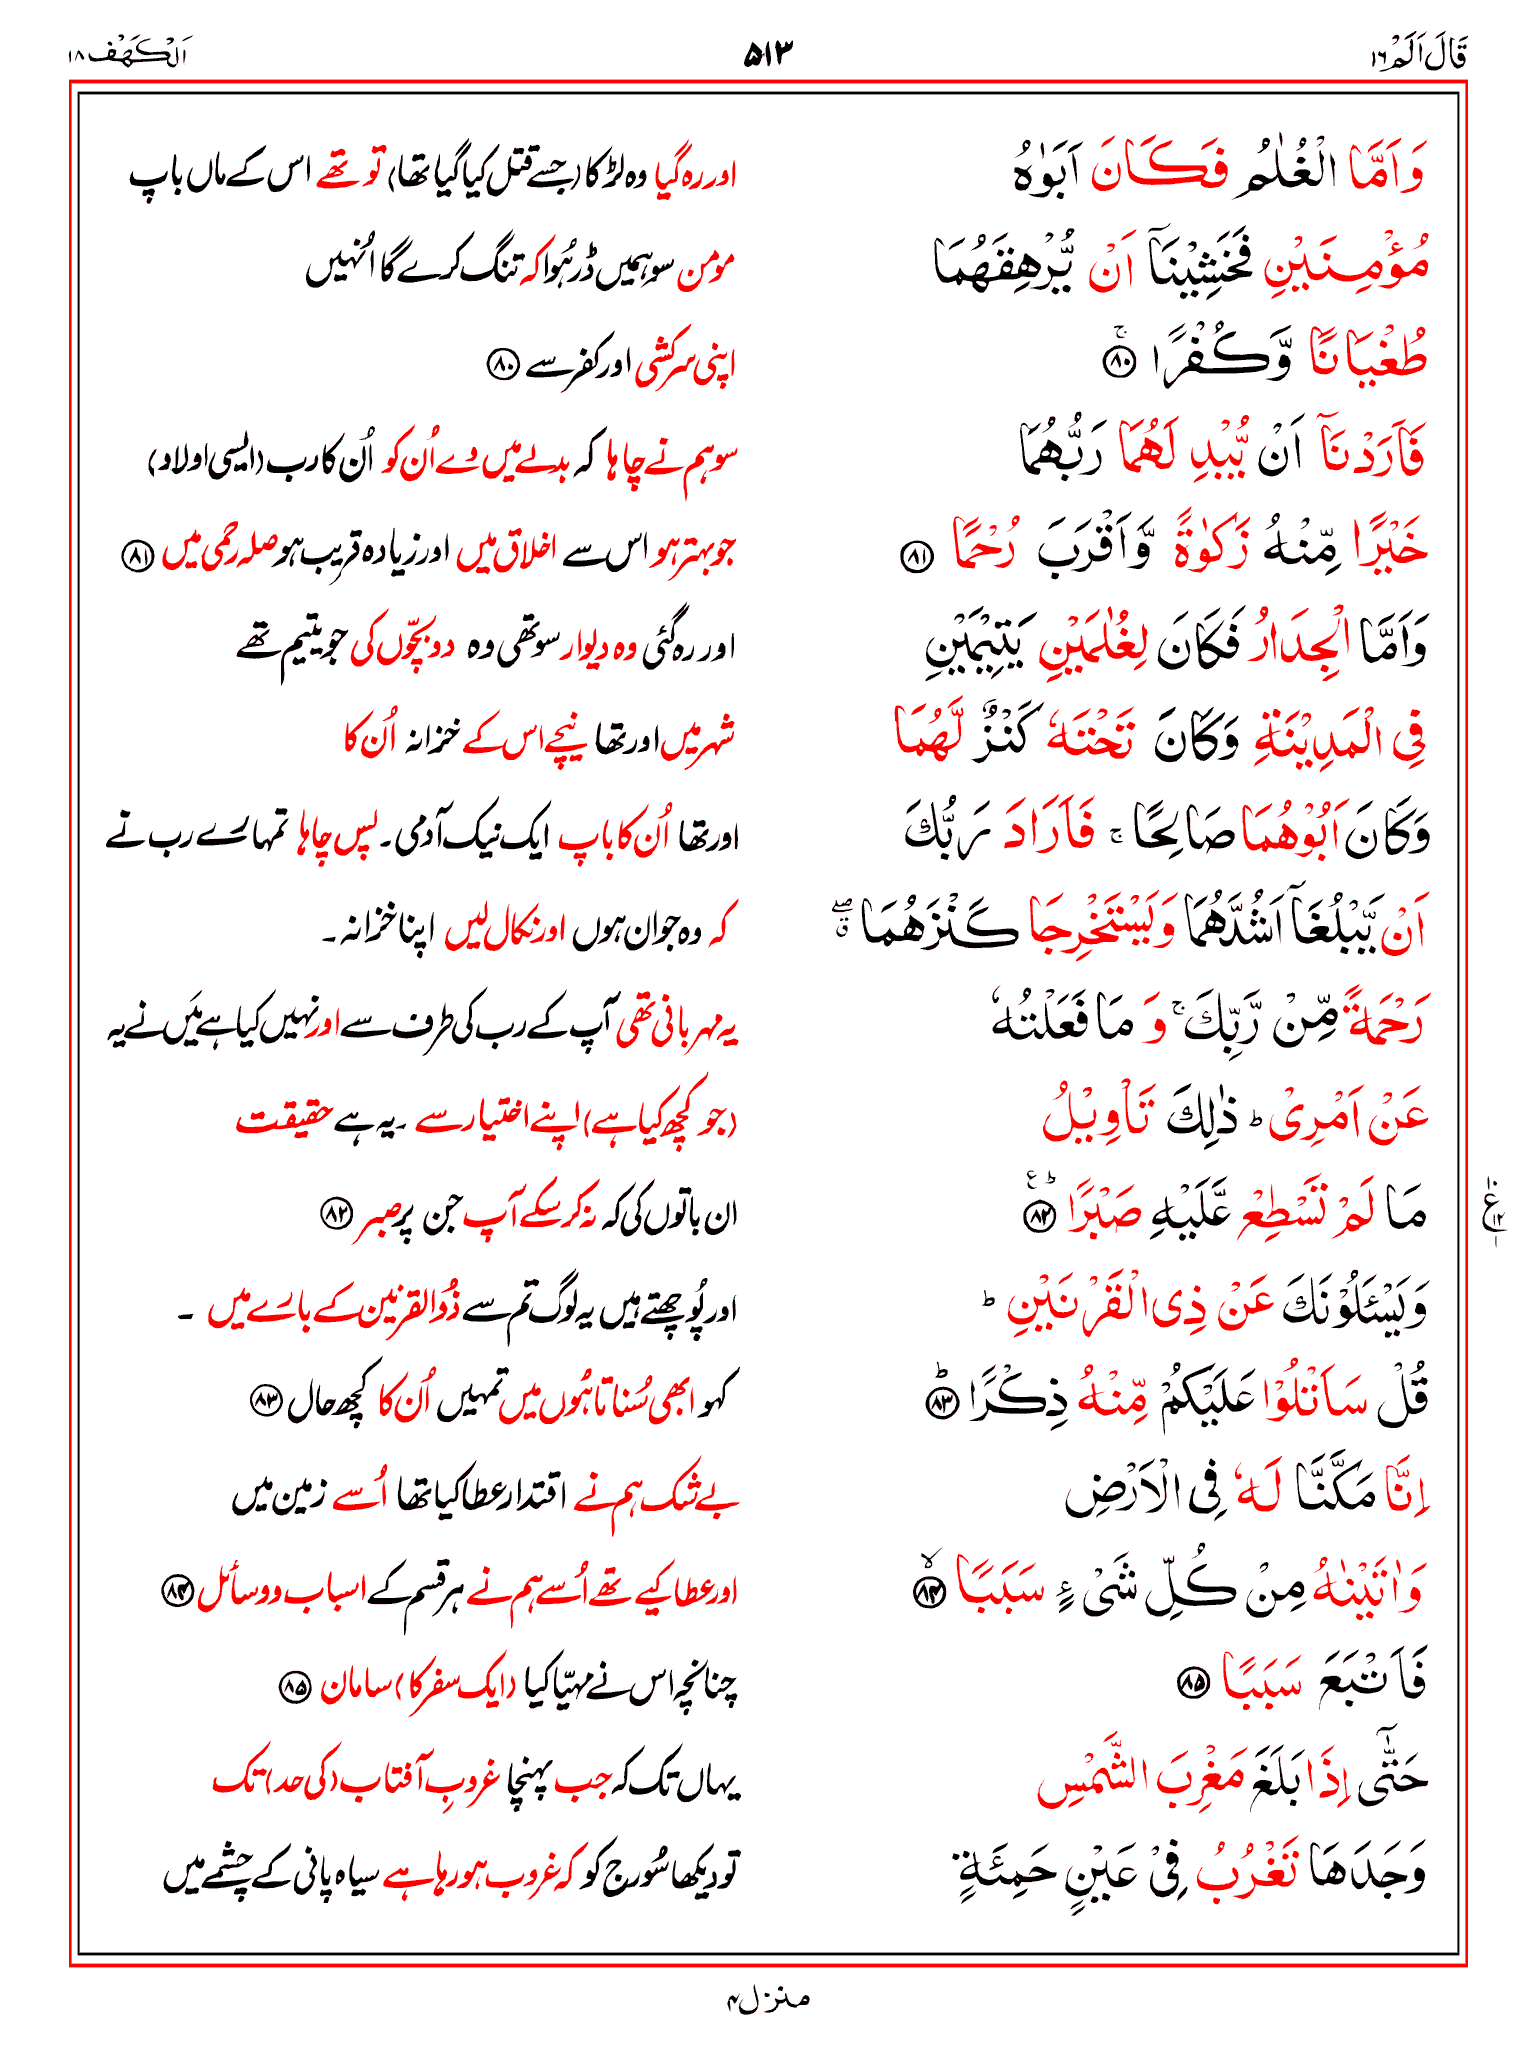 قَالَ اَلَمْ ١٦ ۵١٣ اَلْكَهْف ١٨
وَاَمَّا الْغُلٰمُ فَكَانَ اَبَوٰهُ اور رہ گیا وہ لڑکا (جسے قتل کیا گیا تھا) تو تھے اس کے ماں باپ
مُؤْمِنَيْنِ فَخَشِيْنَآ اَنْ يُّرْهِقَهُمَا مومن سو ہمیں ڈر ہُوا کہ تنگ کرے گا اُنہیں
طُغْيَانًا وَّكُفْرًا ۚ ﴿٨٠﴾ اپنی سرکشی اور کفر سے ﴿٨٠﴾
فَاَرَدْنَآ اَنْ يُّبْدِ لَهُمَا رَبُّهُمَا سو ہم نے چاہا کہ بدلے میں دے اُن کو اُن کا رب (ایسی اولاد)
خَيْرًا مِّنْهُ زَكٰوةً وَّاَقْرَبَ رُحْمًا ﴿٨١﴾ جو بہتر ہو اس سے اخلاق میں اور زیادہ قریب ہو صلہ رحمی میں ﴿٨١﴾
وَاَمَّا الْجِدَارُ فَكَانَ لِغُلٰمَيْنِ يَتِيْمَيْنِ اور رہ گئی وہ دیوار سو تھی وہ دو بچّوں کی جو یتیم تھے
فِي الْمَدِيْنَةِ وَكَانَ تَحْتَهٗ كَنْزٌ لَّهُمَا شہر میں اور تھا نیچے اس کے خزانہ اُن کا
وَكَانَ اَبُوْهُمَا صَالِحًا ۚ فَاَرَادَ رَبُّكَ اور تھا اُن کا باپ ایک نیک آدمی۔ پس چاہا تمہارے رب نے
اَنْ يَّبْلُغَآ اَشُدَّهُمَا وَيَسْتَخْرِجَا كَنْزَهُمَا ۖق کہ وہ جوان ہوں اور نکال لیں اپنا خزانہ۔
رَحْمَةً مِّنْ رَّبِّكَ ۚ وَ مَا فَعَلْتُهٗ یہ مہربانی تھی آپ کے رب کی طرف سے اور نہیں کیا ہے مَیں نے یہ
عَنْ اَمْرِىْ ؕ ذٰلِكَ تَاْوِيْلُ (جو کچھ کیا ہے) اپنے اختیار سے ۔ یہ ہے حقیقت
مَا لَمْ تَسْطِعْ عَّلَيْهِ صَبْرًا ؕع ﴿٨٢﴾ ان باتوں کی کہ نہ کر سکے آپ جن پر صبر ﴿٨٢﴾
ع ١٠ ١٢ ١
وَيَسْـَٔلُوْنَكَ عَنْ ذِى الْقَرْنَيْنِ ؕ اور پُوچھتے ہیں یہ لوگ تم سے ذُوالقرنین کے بارے میں ۔
قُلْ سَاَتْلُوْا عَلَيْكُمْ مِّنْهُ ذِكْرًا ؕ ﴿٨٣﴾ کہو ابھی سُناتا ہُوں میں تمہیں اُن کا کچھ حال ﴿٨٣﴾
اِنَّا مَكَّنَّا لَهٗ فِى الْاَرْضِ بے شک ہم نے اقتدار عطا کیا تھا اُسے زمین میں
وَاٰتَيْنٰهُ مِنْ كُلِّ شَىْءٍ سَبَبًا ۙ ﴿٨٤﴾ اور عطا کیے تھے اُسے ہم نے ہر قسم کے اسباب و وسائل ﴿٨٤﴾
فَاَتْبَعَ سَبَبًا ﴿٨٥﴾ چنانچہ اس نے مہیّا کیا (ایک سفر کا) سامان ﴿٨۵﴾
حَتّٰٓى اِذَا بَلَغَ مَغْرِبَ الشَّمْسِ یہاں تک کہ جب پہنچا غروبِ آفتاب (کی حد) تک
وَجَدَهَا تَغْرُبُ فِىْ عَيْنٍ حَمِئَةٍ تو دیکھا سُورج کو کہ غروب ہو رہا ہے سیاہ پانی کے چشمے میں
منزل ۴